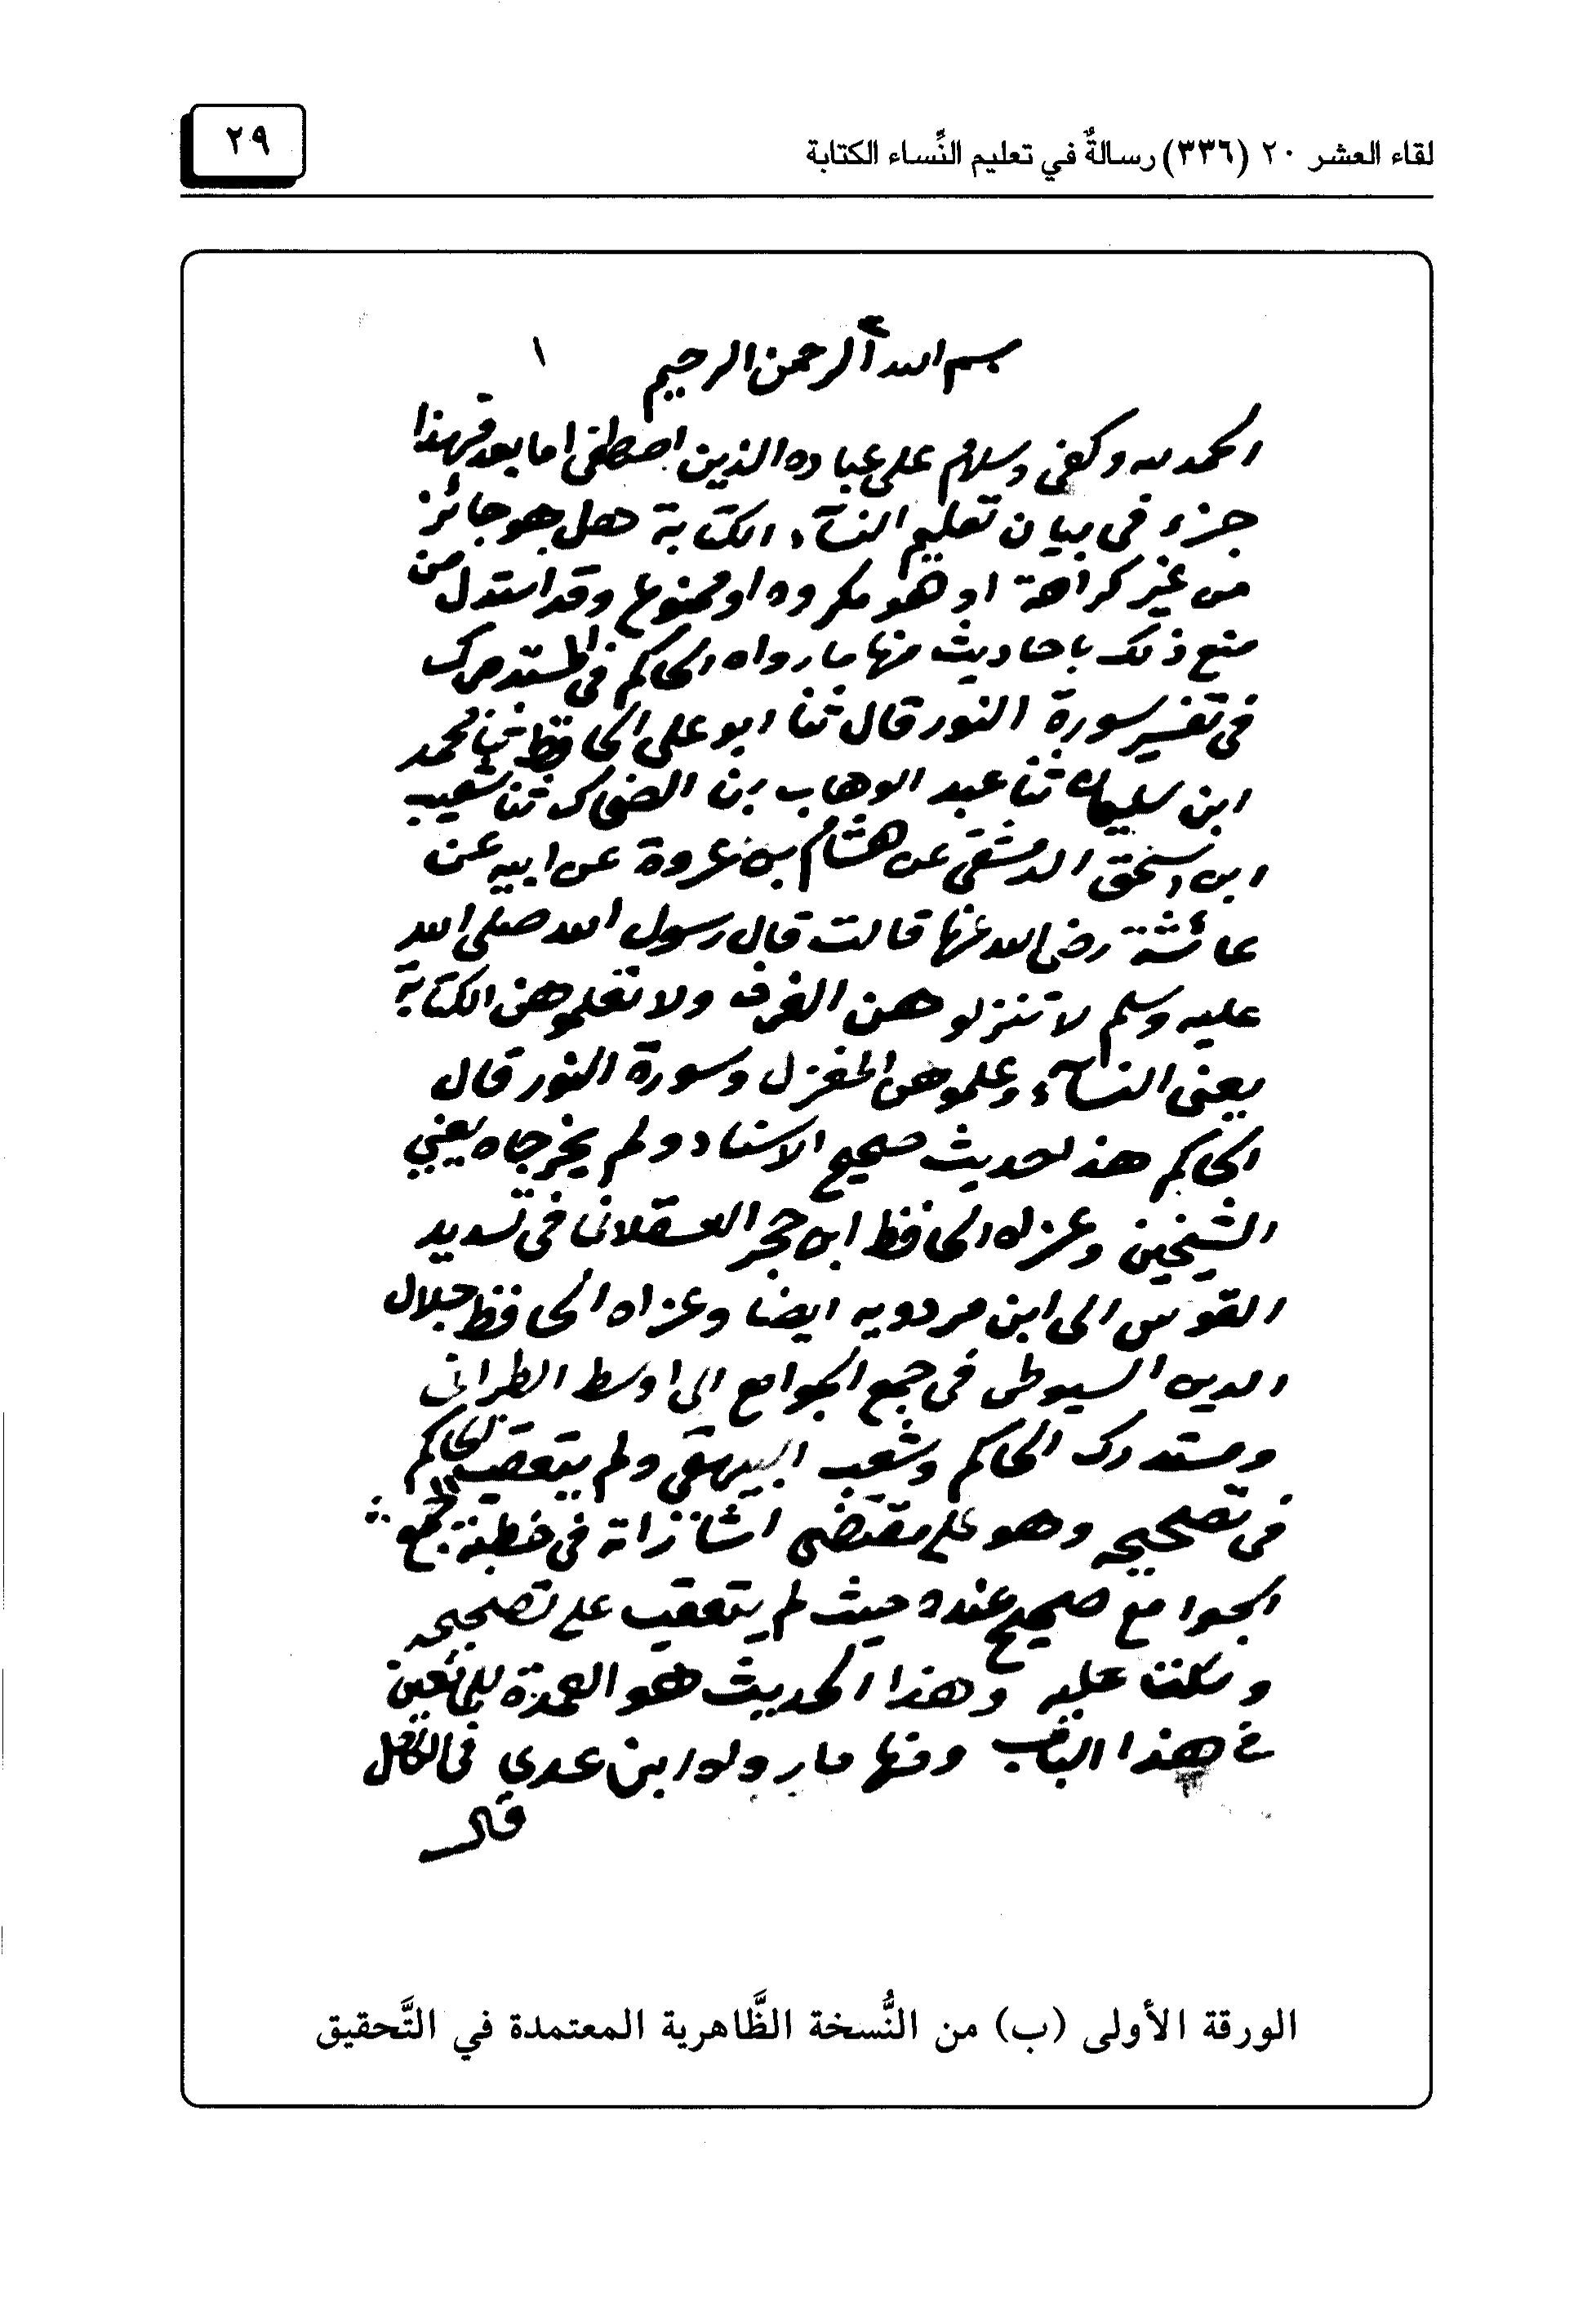 لقاء العشر ٢٠ (٣٣٦) رسالةٌ في تعليم النِّساء الكتابة
٢٩
بسم الله الرحمن الرحيم ١
الحمد لله وكفى وسلام على عباده الذين اصطفى اما بعد فهذا
جزء فى بيان تعليم النسآء الكتابة هل هو جائز
من غير كراهة او هو مكروه او ممنوع وقد استدل من
منع ذلك باحاديث منها ما رواه الحاكم فى المستدرك
فى تفسير سورة النور قال ثنا ابو على الحافظ ثنا محمد
ابن سليمان ثنا عبد الوهاب بن الضحاك ثنا شعيب
ابن اسحق الدمشقى عن هشام بن عروة عن ابيه عن
عائشة رضى الله عنها قالت قال رسول الله صلى الله
عليه وسلم لا تنزلوهن الغرف ولا تعلموهن الكتابة
يعنى النسآء وعلموهن المغزل وسورة النور قال
الحاكم هذا حديث صحيح الاسناد ولم يخرجاه يعني
الشيخين وعزاه الحافظ ابن حجر العسقلانى فى تسديد
القوس الى ابن مردويه ايضا وعزاه الحافظ جلال
الدين السيوطى فى جمع الجوامع الى اوسط الطبرانى
ومستدرك الحاكم وشعب البيهقى ولم يتعقب الحاكم
فى تصحيحه وهو على مقتضى فى خطبة جمع
الجوامع صحيح عنده حيث لم يتعقب على تصحيحه
وسكت عليه وهذا الحديث هو العمدة للمانعين
فى هذا الباب ومنها ما رواه ابن عدي فى الكامل
قال
الورقة الأولى (ب) من النُّسخة الظَّاهرية المعتمدة في التَّحقيق